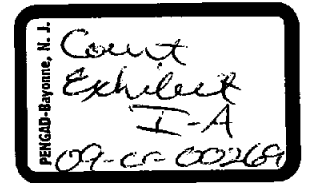 PENGAD-Bayonne, N. J.
Court
Exhibit
I-A
09-cr-00269